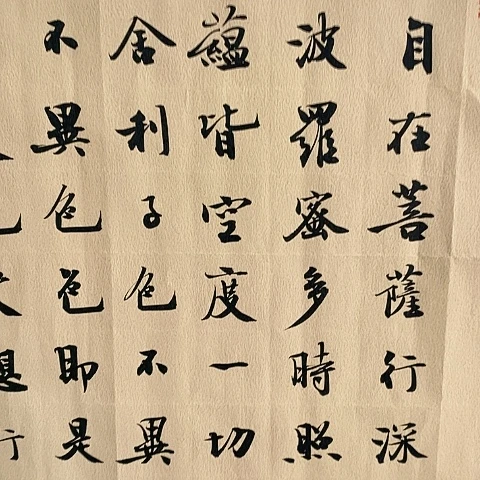 自在菩薩行深
波羅蜜多時照
蘊皆空度一切
舍利子色不異
不異色色即是